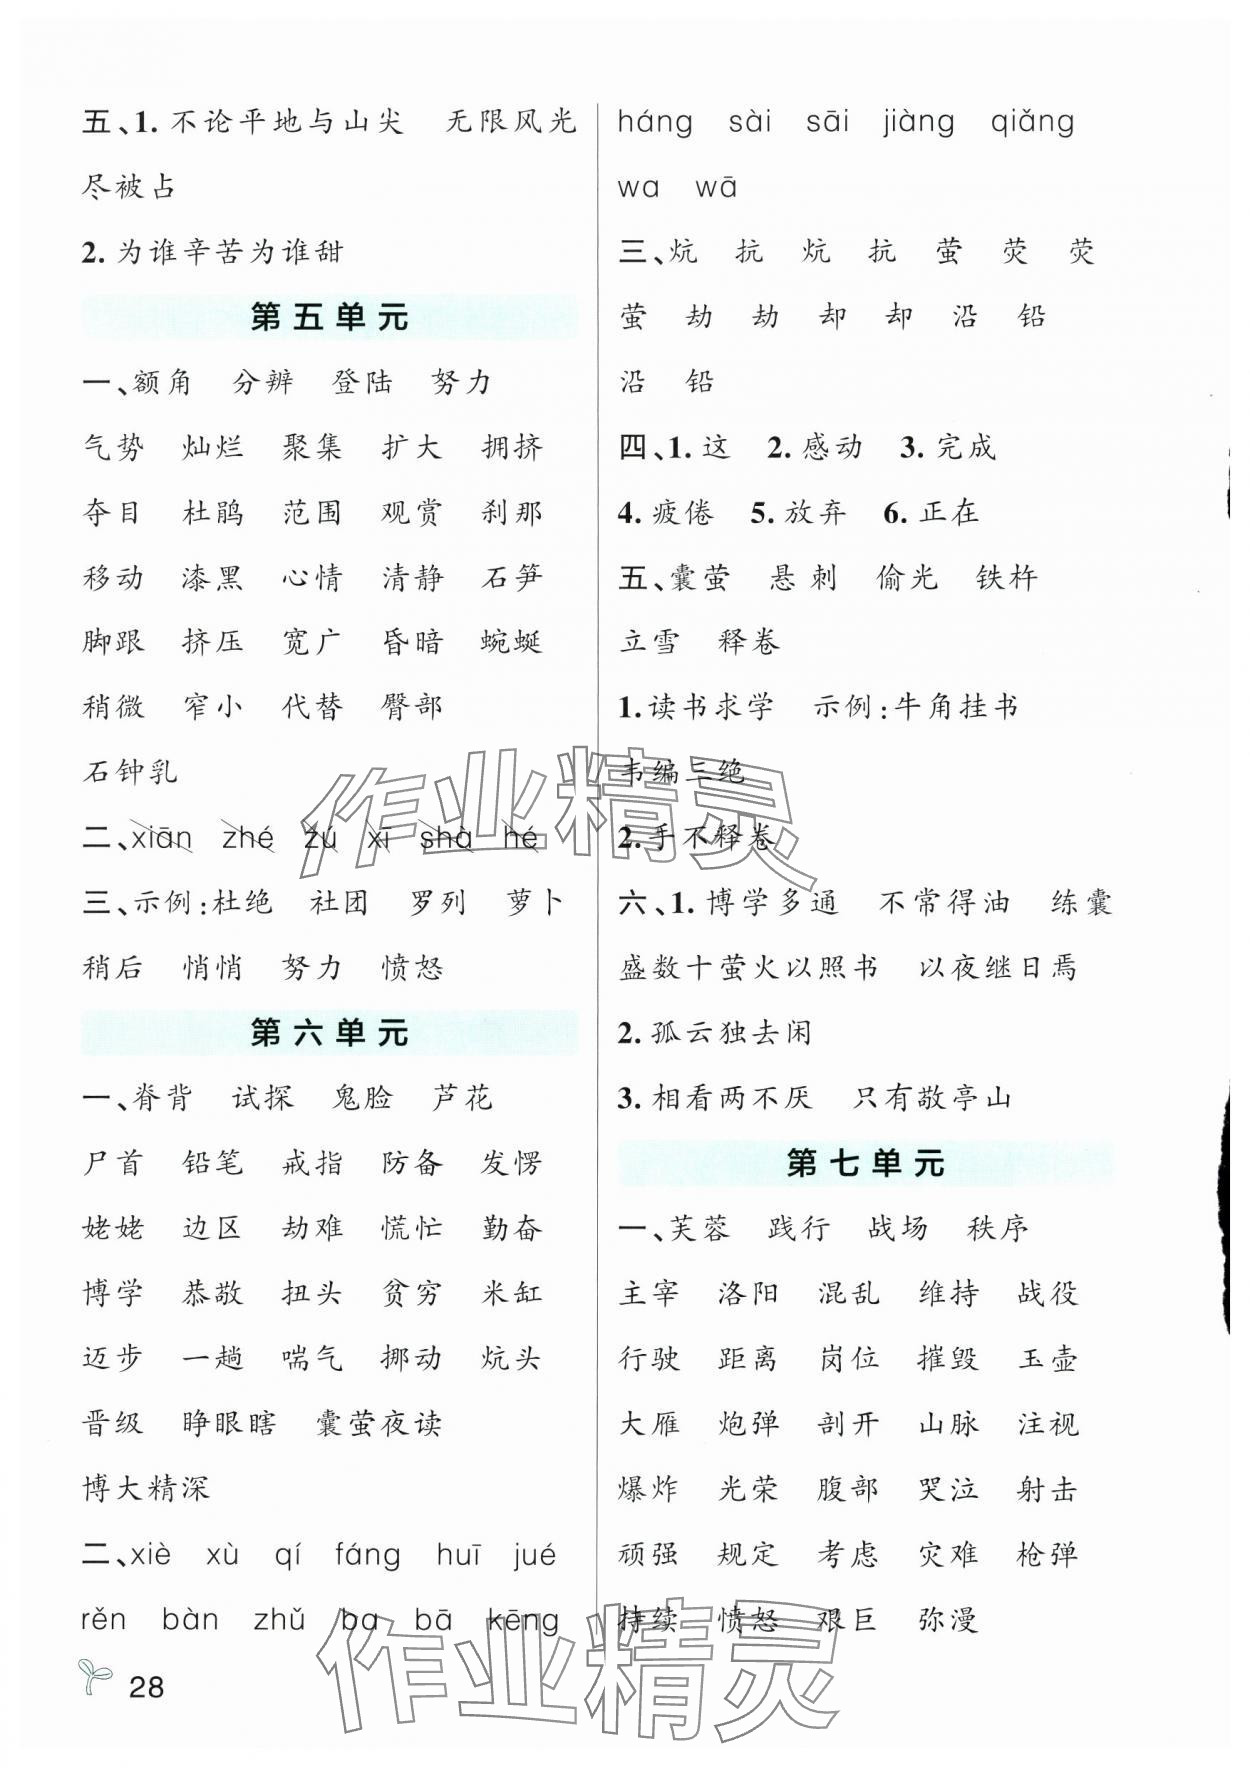 五、1.不论平地与山尖 无限风光
尽被占
2.为谁辛苦为谁甜
第五单元
一、额角 分辨 登陆 努力
气势 灿烂 聚集 扩大 拥挤
夺目 杜鹃 范围 观赏 刹那
移动 漆黑 心情 清静 石笋
脚跟 挤压 宽广 昏暗 蜿蜒
稍微 窄小 代替 臀部
石钟乳
二、xiān zhé zú xī shà hé
三、示例:杜绝 社团 罗列 萝卜
稍后 悄悄 努力 愤怒
第六单元
一、脊背 试探 鬼脸 芦花
尸首 铅笔 戒指 防备 发愣
姥姥 边区 劫难 慌忙 勤奋
博学 恭敬 扭头 贫穷 米缸
迈步 一趟 喘气 挪动 炕头
晋级 睁眼瞎 囊萤夜读
博大精深
二、xiè xù qí fáng huī jué
rěn bàn zhǔ ba bā kēng
28
háng sài sāi jiàng qiǎng
wa wā
三、炕 抗 炕 抗 萤 荧 荧
萤 劫 劫 却 却 沿 铅
沿 铅
四、1.这 2.感动 3.完成
4.疲倦 5.放弃 6.正在
五、囊萤 悬刺 偷光 铁杵
立雪 释卷
1.读书求学 示例:牛角挂书
韦编三绝
2.手不释卷
六、1.博学多通 不常得油 练囊
盛数十萤火以照书 以夜继日焉
2.孤云独去闲
3.相看两不厌 只有敬亭山
第七单元
一、芙蓉 践行 战场 秩序
主宰 洛阳 混乱 维持 战役
行驶 距离 岗位 摧毁 玉壶
大雁 炮弹 剖开 山脉 注视
爆炸 光荣 腹部 哭泣 射击
顽强 规定 考虑 灾难 枪弹
持续 愤怒 艰巨 弥漫
作业精灵
作业精灵